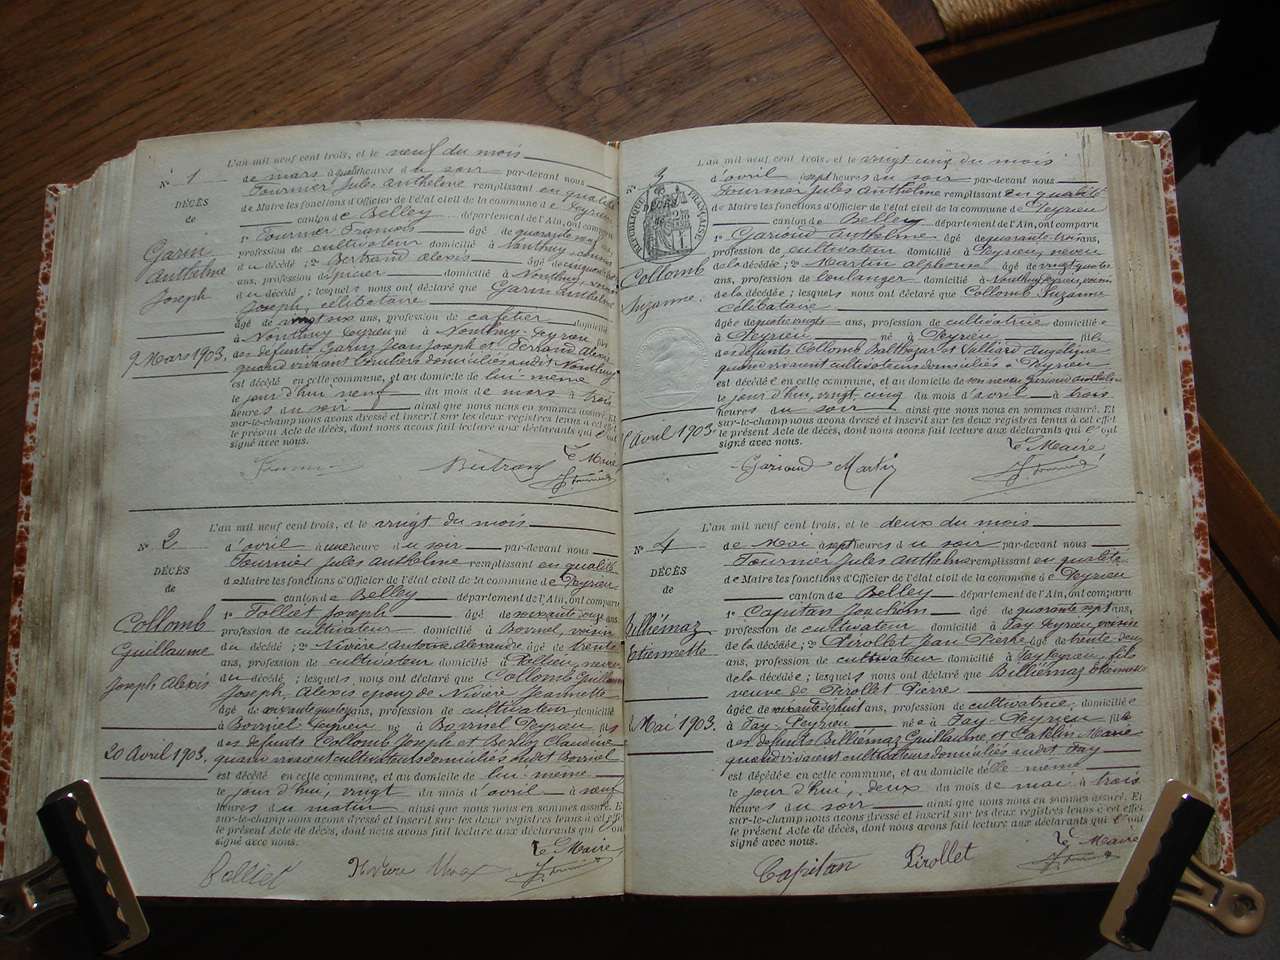 L'an mil neuf cent trois, et le neuf du mois
N° 1 de mars à quatre heures du soir par-devant nous
DÉCÈS Fournier Jules Anthelme remplissant en qualité
de de Maire les fonctions d'Officier de l'état civil de la commune de Peyrieu
canton de Belley département de l'Ain, ont comparu
Garin 1° Fournier François âgé de quarante
Anthelme profession de cultivateur domicilié à
Joseph du décédé ; 2° Bertrand Alexis âgé de cinquante
ans, profession d'épicier domicilié à
du décédé ; lesquels nous ont déclaré que Garin Anthelme
Joseph célibataire
âgé de ans, profession de cafetier domicilié
à Peyrieu né à Peyrieu
9 Mars 1903. des défunts Garin Jean Joseph et
quand vivaient domiciliés audit
est décédé en cette commune, et au domicile de lui-même
le jour d'hui neuf du mois de mars à trois
heures du soir ainsi que nous nous en sommes assuré. Et
sur-le-champ nous avons dressé et inscrit sur les deux registres tenus à cet effet
le présent Acte de décès, dont nous avons fait lecture aux déclarants qui l'ont
signé avec nous.
Le Maire
Bertrand
L'an mil neuf cent trois, et le vingt du mois
N° 2 d'avril à une heure du soir par-devant nous
DÉCÈS Fournier Jules Anthelme remplissant en qualité
de de Maire les fonctions d'Officier de l'état civil de la commune de Peyrieu
canton de Belley département de l'Ain, ont comparu
Collomb 1° Folliet Joseph âgé de ans,
Guillaume profession de cultivateur domicilié à voisin
du décédé ; 2° Nivière Antoine Alexandre âgé de trente
Joseph Alexis ans, profession de cultivateur domicilié à neveu
du décédé ; lesquels nous ont déclaré que Collomb Guillaume
Joseph, Alexis époux de Nivière Jeannette
âgé de ans, profession de cultivateur domicilié
à Peyrieu né à Peyrieu fils
20 Avril 1903. des défunts Collomb Joseph et Claudine
quand vivaient cultivateurs domiciliés audit
est décédé en cette commune, et au domicile de lui-même
le jour d'hui, vingt du mois d'avril à neuf
heures du matin ainsi que nous nous en sommes assuré. Et
sur-le-champ nous avons dressé et inscrit sur les deux registres tenus à cet effet
le présent Acte de décès, dont nous avons fait lecture aux déclarants qui l'ont
signé avec nous.
Le Maire
Folliet
L'an mil neuf cent trois, et le vingt cinq du mois
N° 3 d'avril à sept heures du soir par-devant nous
DÉCÈS Fournier Jules Anthelme remplissant en qualité
de Maire les fonctions d'Officier de l'état civil de la commune de Peyrieu
RÉPUBLIQUE FRANÇAISE
canton de Belley département de l'Ain, ont comparu
1° Garioud Anthelme âgé de quarante trois ans,
profession de cultivateur domicilié à Peyrieu, neveu
Collomb de la décédée ; 2° Martin Alphonse âgé de vingt quatre
ans, profession de boulanger domicilié à voisin
Suzanne. de la décédée ; lesquels nous ont déclaré que Collomb Suzanne
célibataire
âgée de quatre vingts ans, profession de cultivatrice domiciliée
à Peyrieu née à Peyrieu fille
des défunts Collomb Balthazar et Angeline
quand vivaient cultivateurs domiciliés à Peyrieu
est décédée en cette commune, et au domicile de son neveu Garioud Anthelme
le jour d'hui, vingt-cinq du mois d'avril à trois
heures du soir ainsi que nous nous en sommes assuré. Et
sur-le-champ nous avons dressé et inscrit sur les deux registres tenus à cet effet
Avril 1903. le présent Acte de décès, dont nous avons fait lecture aux déclarants qui l'ont
signé avec nous.
Le Maire
Garioud Martin
L'an mil neuf cent trois, et le deux du mois
N° 4 de Mai à sept heures du soir par-devant nous
DÉCÈS Fournier Jules Anthelme remplissant en qualité
de de Maire les fonctions d'Officier de l'état civil de la commune de Peyrieu
canton de Belley département de l'Ain, ont comparu
Billiémaz 1° Capitan Joachim âgé de quarante sept ans,
profession de cultivateur domicilié à Fay Peyrieu, voisin
Etiennette de la décédée ; 2° Pirollet Jean Pierre âgé de trente deux
ans, profession de cultivateur domicilié à Fay Peyrieu, fils
de la décédée ; lesquels nous ont déclaré que Billiémaz Etiennette
veuve de Pirollet Pierre
âgée de soixante dix huit ans, profession de cultivatrice, domiciliée
Mai 1903. à Fay-Peyrieu née à Fay-Peyrieu fille
des défunts Billiémaz Guillaume et Catelin Marie
quand vivaient cultivateurs domiciliés audit Fay
est décédée en cette commune, et au domicile d'elle-même
le jour d'hui, deux du mois de mai à trois
heures du soir ainsi que nous nous en sommes assuré. Et
sur-le-champ nous avons dressé et inscrit sur les deux registres tenus à cet effet
le présent Acte de décès, dont nous avons fait lecture aux déclarants qui l'ont
signé avec nous.
Le Maire
Capitan Pirollet